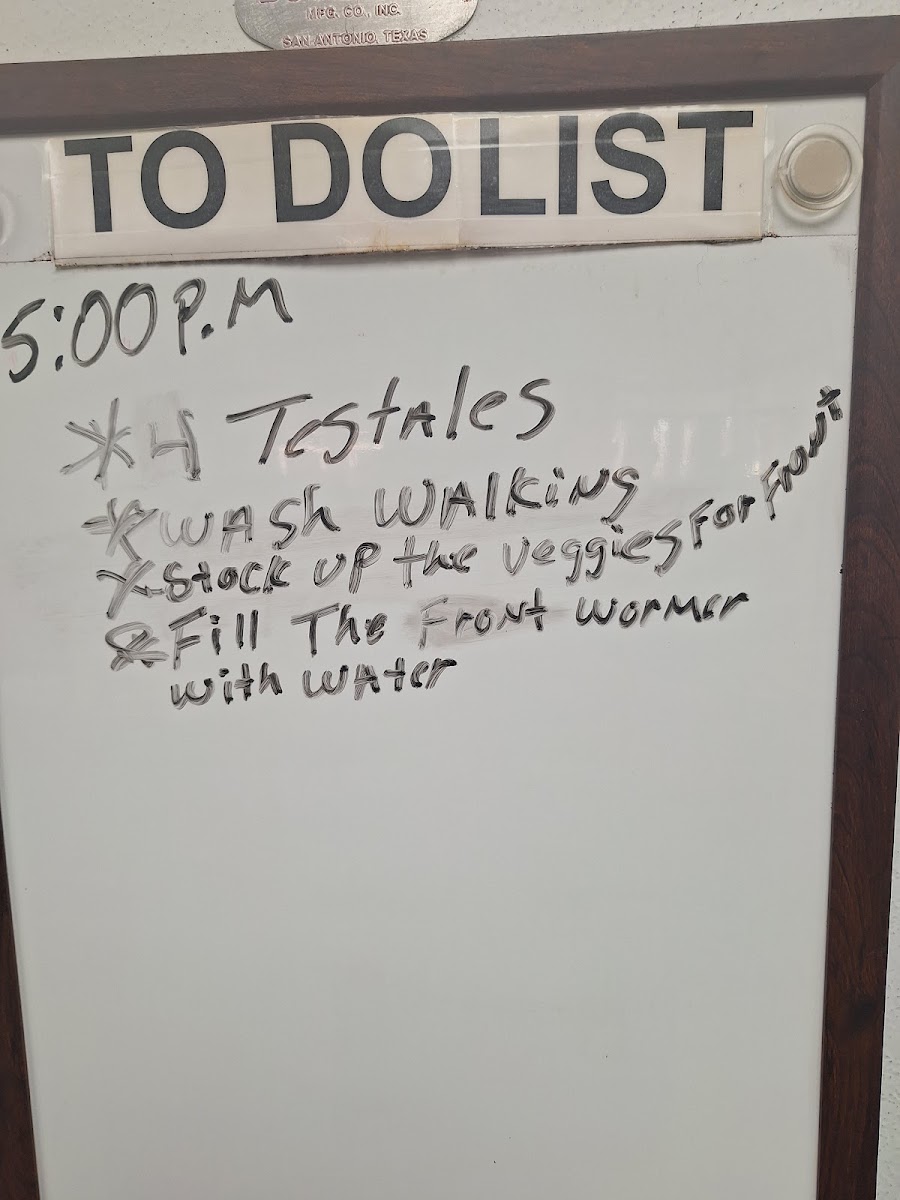 MFG. CO., INC.
SAN ANTONIO, TEXAS
TO DO LIST
5:00 P.M
*4 Testales
*WASh WALKiNg
*Stock up the veggies For Front
*Fill The Front wormer
with water